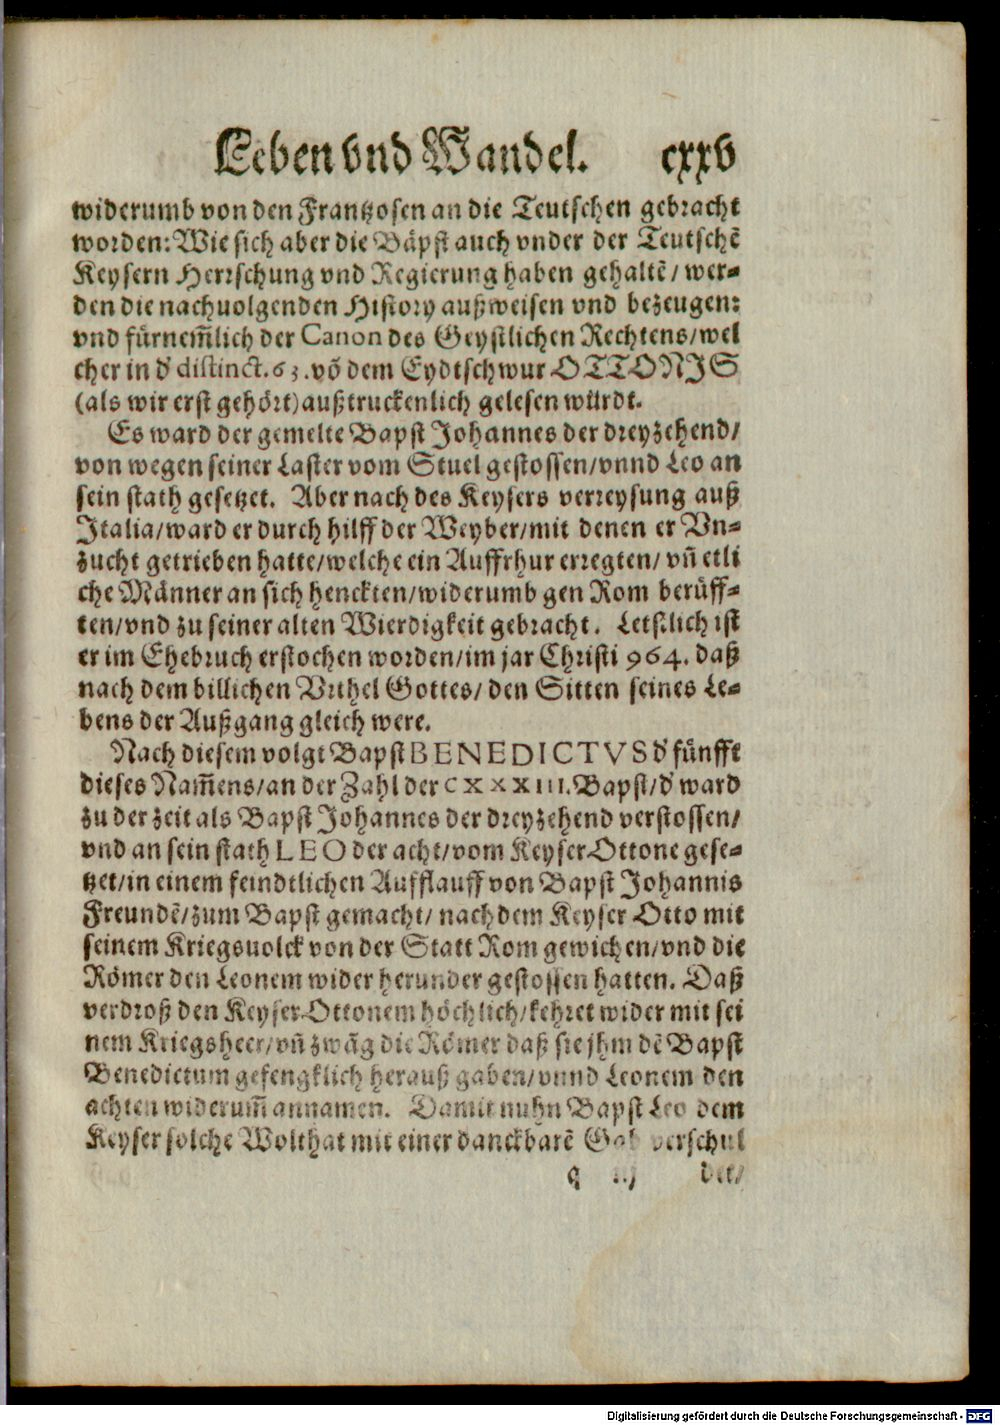 Leben vnd Wandel. cxxv
widerumb von den Frantzosen an die Teutschen gebracht
worden: Wie sich aber die Bäpst auch vnder der Teutschē
Keysern Herrschung vnd Regierung haben gehaltē/ wer-
den die nachuolgenden History außweisen vnd bezeugen:
vnd fürnem̄lich der Canon des Geystlichen Rechtens/wel
cher in d' distinct. 63. vō dem Eydtschwur OTTONIS
(als wir erst gehört) außtruckenlich gelesen würdt.
Es ward der gemelte Bapst Johannes der dreyzehend/
von wegen seiner Laster vom Stuel gestossen/vnnd Leo an
sein stath gesetzet. Aber nach des Keysers verreysung auß
Italia/ward er durch hilff der Weyber/mit denen er Vn-
zucht getrieben hatte/welche ein Auffrhur erregten/ vn̄ etli
che Männer an sich henckten/widerumb gen Rom berüff-
ten/vnd zu seiner alten Wierdigkeit gebracht. Letstlich ist
er im Ehebruch erstochen worden/im jar Christi 964. daß
nach dem billichen Vrthel Gottes/ den Sitten seines Le-
bens der Außgang gleich were.
Nach diesem volgt Bapst BENEDICTVS d' fünfft
dieses Nam̄ens/an der Zahl der CXXXIII. Bapst/d' ward
zu der zeit als Bapst Johannes der dreyzehend verstossen/
vnd an sein stath LEO der acht/vom Keyser Ottone gese-
tzet/in einem feindtlichen Aufflauff von Bapst Johannis
Freundē/zum Bapst gemacht/ nach dem Keyser Otto mit
seinem Kriegsuolck von der Statt Rom gewichen/vnd die
Römer den Leonem wider herunder gestossen hatten. Daß
verdroß den Keyser Ottonem höchlich/kehret wider mit sei
nem Kriegsheer/vn̄ zwāg die Römer daß sie jhm dē Bapst
Benedictum gefengklich herauß gaben/vnnd Leonem den
achten widerum̄ annamen. Damit nuhn Bapst Leo dem
Keyser solche Wolthat mit einer danckbarē verschul
q det/
Digitalisierung gefördert durch die Deutsche Forschungsgemeinschaft - DFG